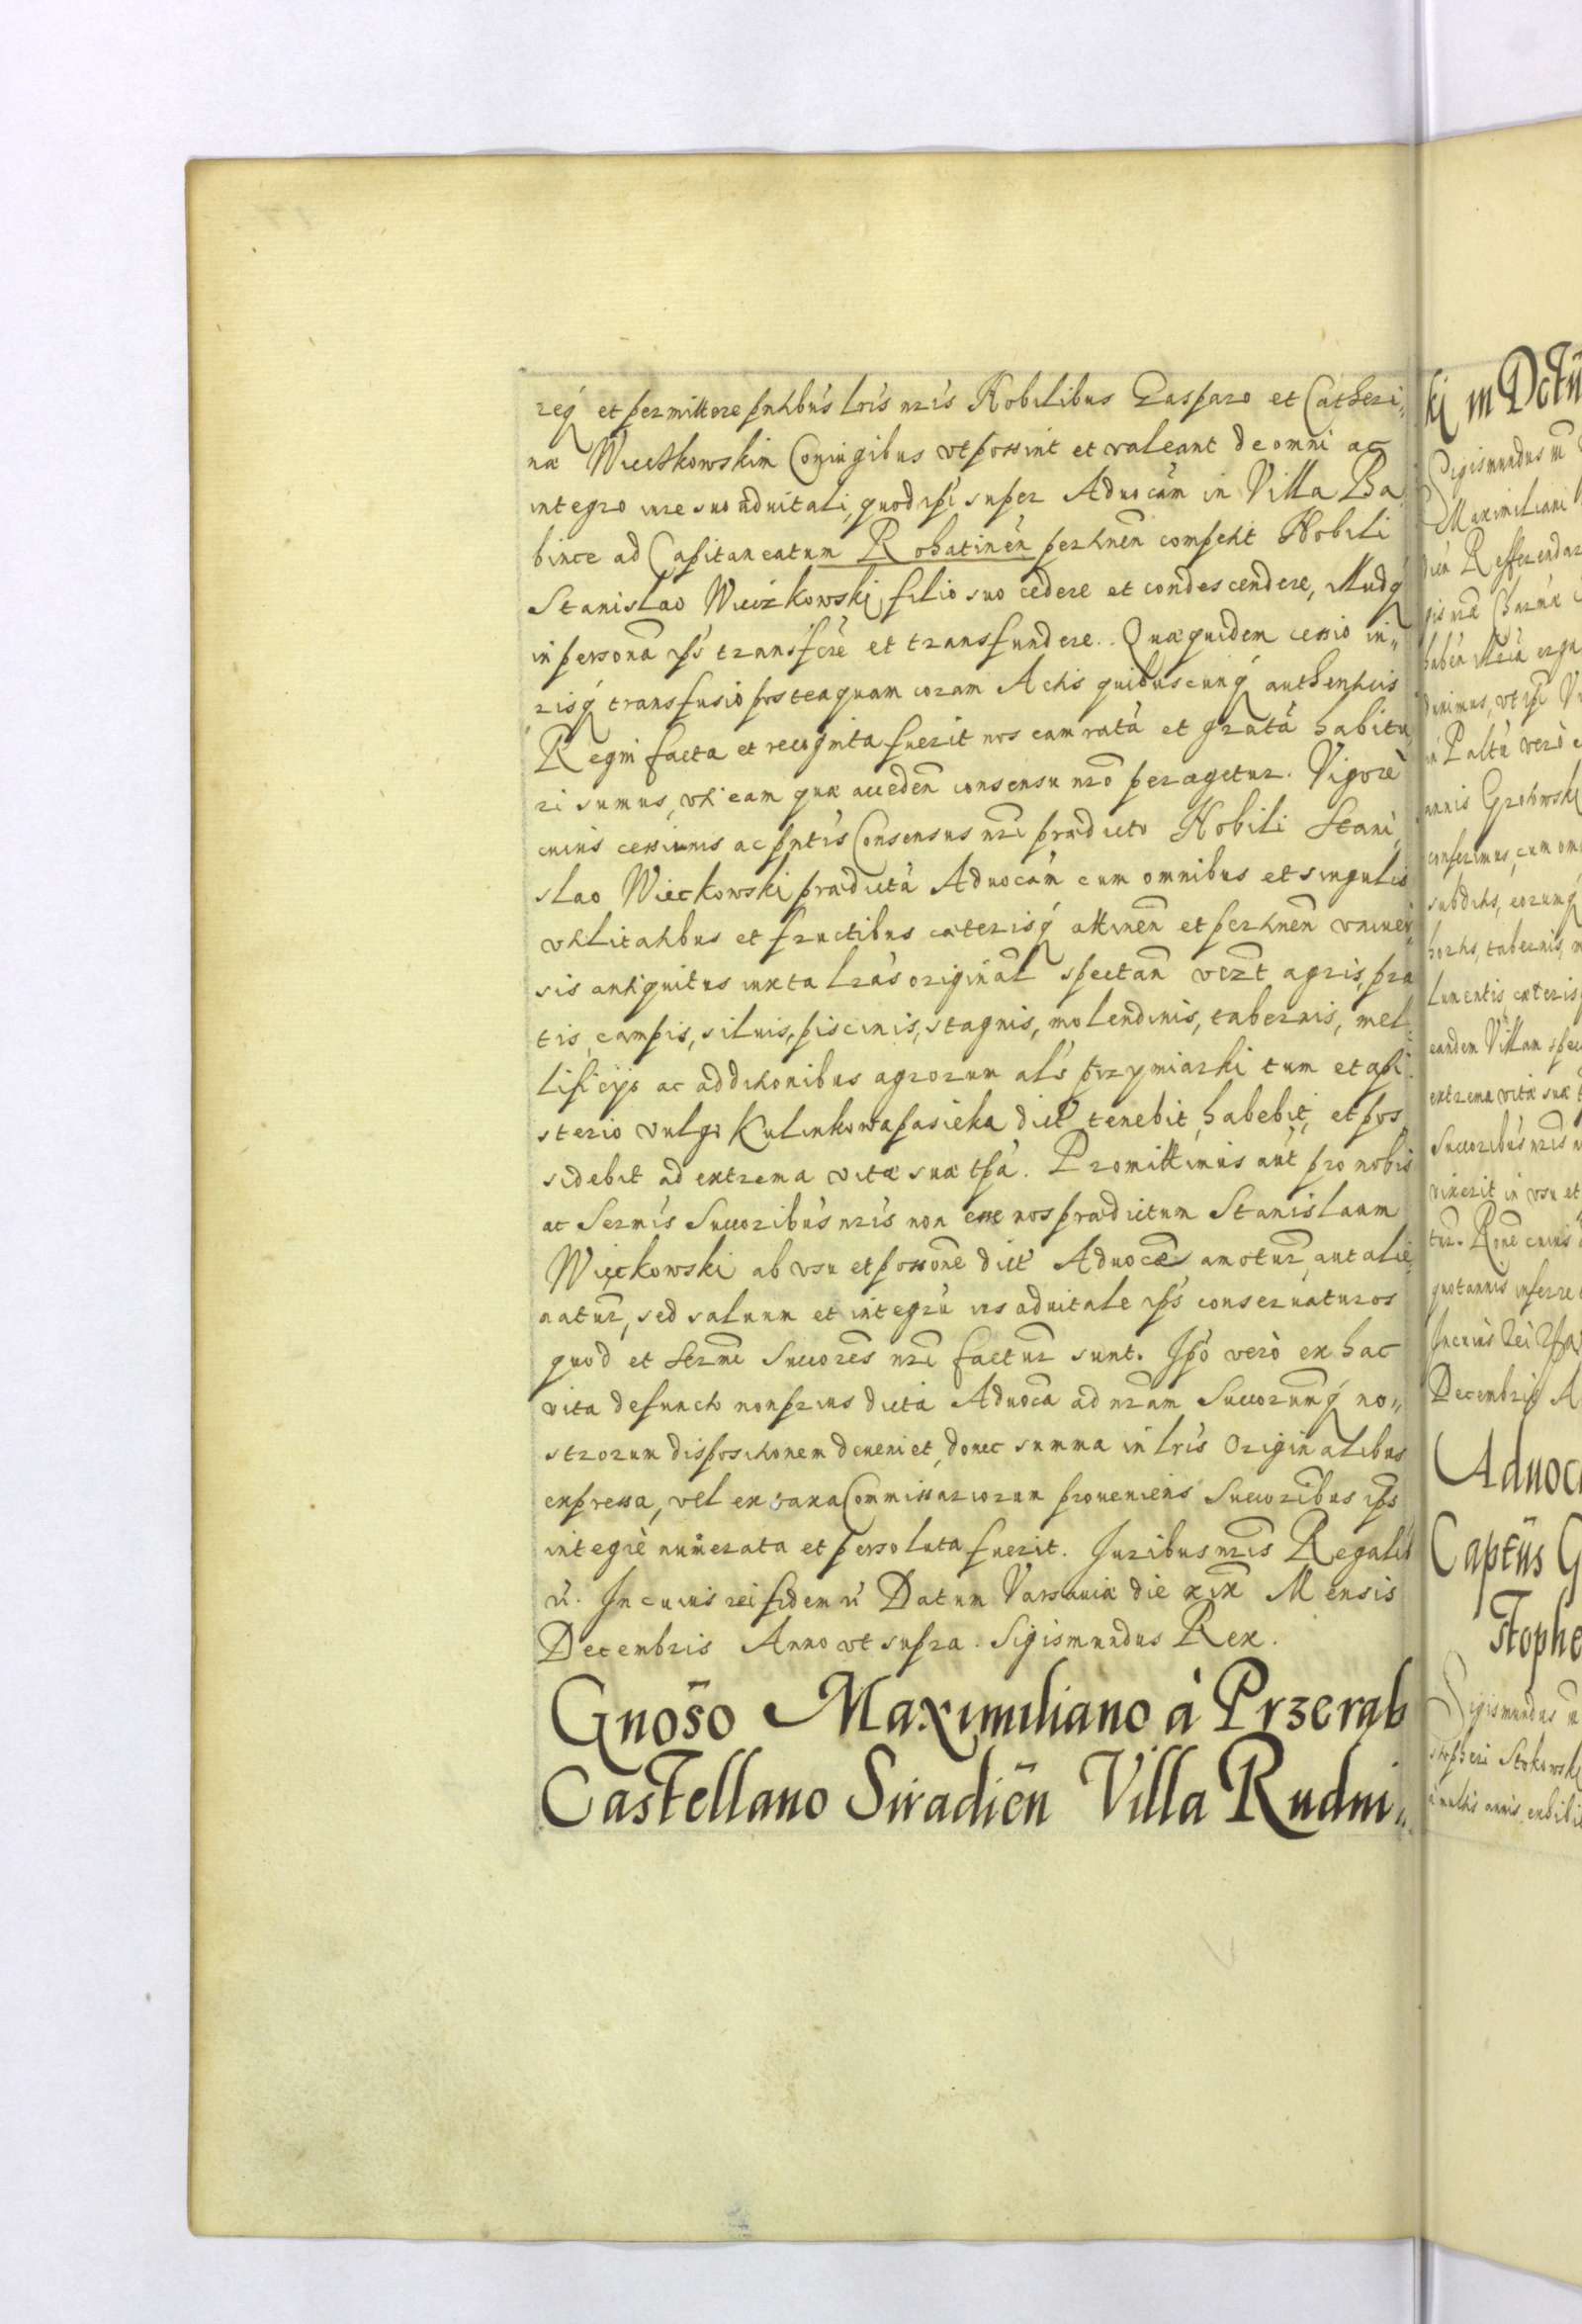 req́ et permittere pntibus lris nris Nobilibus Gasparo et Catheri„
næ Wieczkowskim Coniugibus vt possint et valeant de omni ac
integro iure suo aduitali, quod ipsi super Aduocãm in Villa Ba„
bince ad Capitaneatum Rohatinẽn pertinẽn competit Nobili
Stanislao Wieczkowski filio suo cedere et condescendere, illudq́
in personã ips transferre et transfundere. Quæquidem cessio iu„
risq́ transfusio posteaquam coram Actis quibuscunq́ authenticis
Regni facta et recognita fuerit nos eam ratã et gratã habitu„
ri sumus, vti eam quæ acceden̄ consensu nrõ peragetur. Vigorè
cuius cessionis ac pntis Consensus nri prædicto Nobili Stani„
slao Wieckowski prædictã Aduocãm cum omnibus et singulis
vtilitatibus et fructibus cæterisq́ attinen̄ et pertinen̄ vniuer„
sis antiquitus iuxta lrãs originál spectan̄ vezt agris, pra„
tis, campis, siluis, piscinis, stagnis, molendinis, tabernis, mel„
lificijs ac additionibus agrorum als przymiarki tum et api„
sterio vulgo Kulinkowa pasieka dict tenebit, habebit, et pos„
sidebit ad extrema vitæ suæ tpã. Promittimus aut pro nobis
ac Sermis Succoribus nris non esse nos prædictum Stanislaum
Wieckowski ab vsu et possone dict Aduocæ amotur, aut alie„
natur, sed saluum et integrũ ius aduitale ips conseruaturos
quod et Sermi Succores nri factur sunt. Ipso verò ex hac
vita defuncto non prius dicta Aduoca ad nram Succorumq́ no„
strorum dispositionem deueniet, donec summa in lris Originalibus
expressa, vel ex taxa Commissariorum proueniens Succoribus ips
integrè numerata et persoluta fuerit. Iuribus nris Regalib
ũ. In cuius rei fidem ũ Datum Varsauiæ die xix Mensis
Decembris Anno vt supra. Sigismundus Rex.
Gnoso Maximiliano à Przerab
Castellano Siradiẽn Villa Rudni„
ki in Dctũ
Sigismundus
Maximiliani
Refferendar
Paltũ verò
Grotowski
conferimus, cum om
subditis, eorumq́
hortis, tabernis,
cæteris
eandem Villam spec
extrema vitæ suæ
Succoribus nris
vixerit in vsu et
tur. Rone cuius
quotannis inferre
In cuius rei
Decembris A
Aduoc
Captũs G
stophe
Sigismundus
stopheri Stokowski